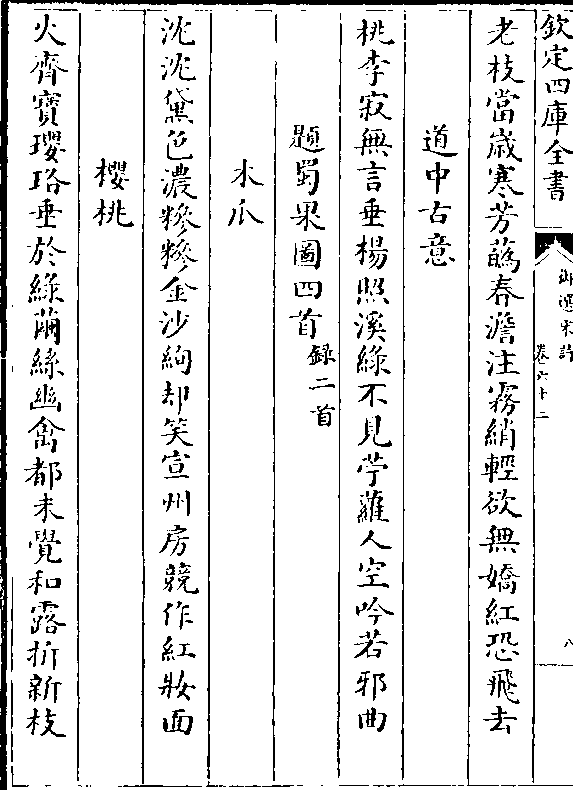 欽定四庫全書
御選宋詩
卷六十二
八
老枝當歲寒芳蘤春澹注霧綃輕欲無嬌紅恐飛去
道中古意
桃李寂無言垂楊照溪綠不見苧蘿人空吟若邪曲
題蜀果圖四首錄二首
木瓜
沈沈黛色濃糝糝金沙絢却笑宣州房競作紅妝面
櫻桃
火齊寶瓔珞垂於綠繭絲幽禽都未覺和露折新枝